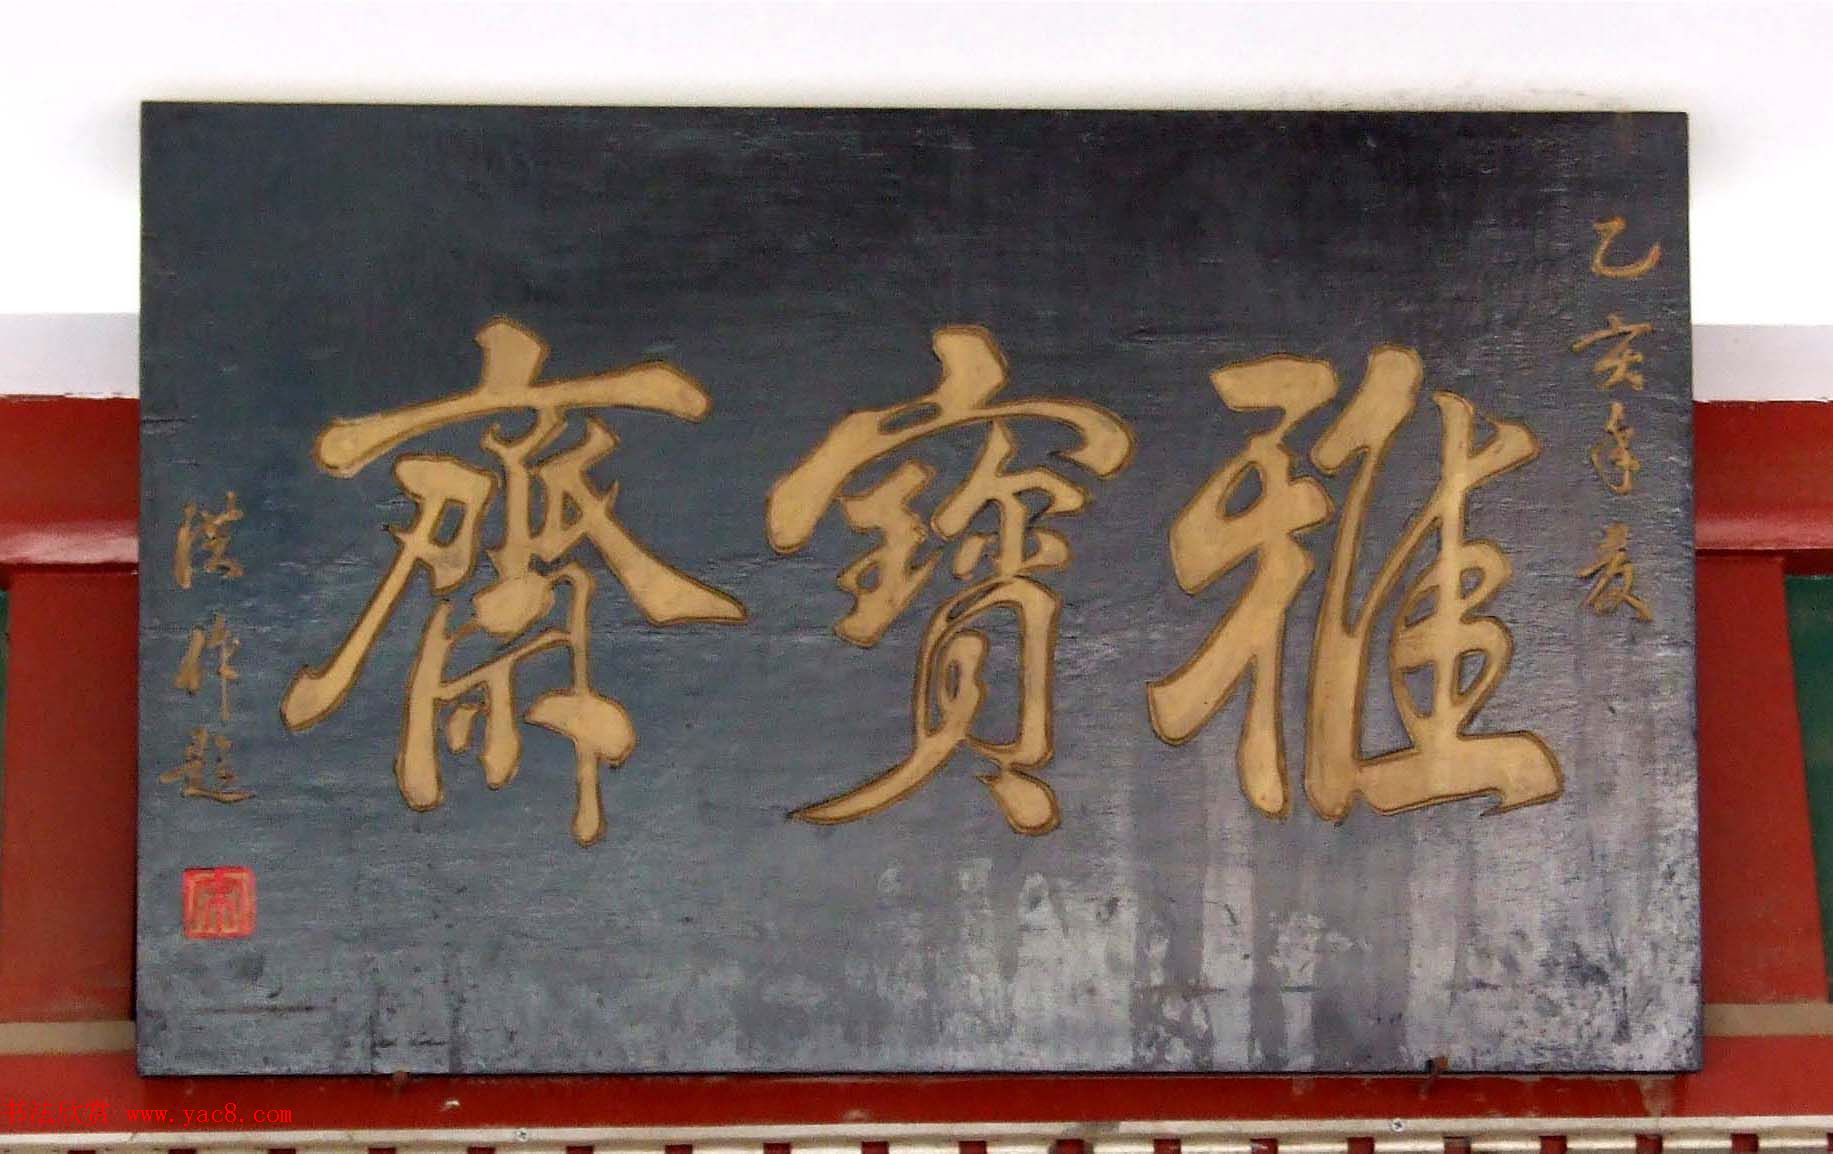 乙亥年夏
雅寶齋
洪作題
书法欣赏 www.yac8.com